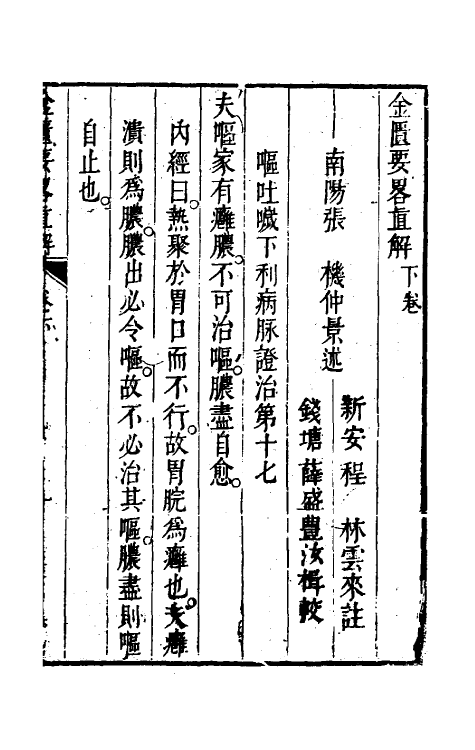 金匱要畧直解 下卷
南陽張 機仲景述
新安程 林雲來註
錢塘薛盛豐汝楫較
嘔吐噦下利病脉證治第十七
夫嘔家有癰膿。不可治嘔。膿盡自愈。
內經曰。熱聚於胃口而不行。故胃脘為癰也。夫癰
潰則為膿。膿出必令嘔。故不必治其嘔。膿盡則嘔
自止也。
金匱要畧直解